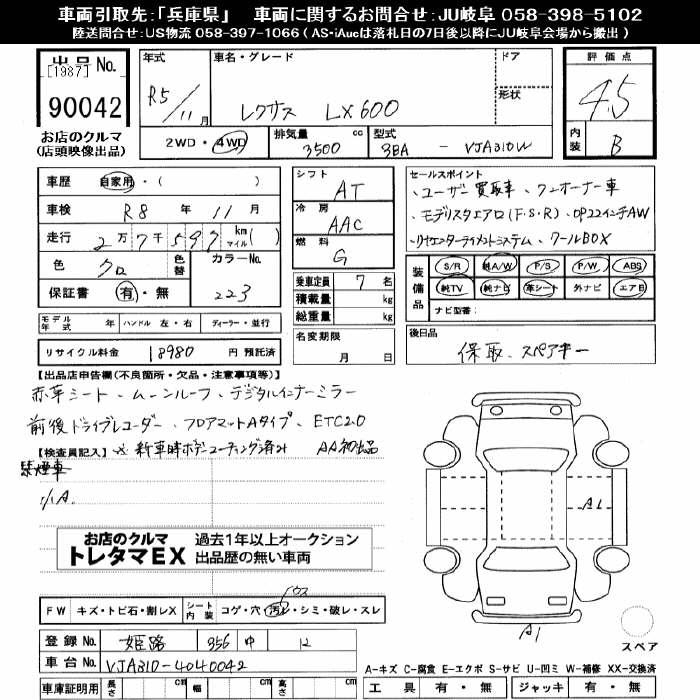 車両引取先:「兵庫県」 車両に関するお問合せ:JU岐阜 058-398-5102
陸送問合せ:US物流 058-397-1066 (AS・iAucは落札日の7日後以降にJU岐阜会場から搬出)
出品No.
[1987]
90042
お店のクルマ
(店頭映像出品)
年式
R5/11月
車名・グレード
レクサス LX600
ドア
形状
2WD・4WD
排気量 3500 cc
型式 3BA - VJA310W
評価点
4.5
内装 B
車歴 自家用・( )
車検 R8年11月
走行 2万7千597 km マイル( )
色 クロ 色替 カラーNo.
保証書 有・無 223
モデル年式 年 ハンドル 左・右 ディーラー・並行
リサイクル料金 18980 円 預託済
シフト AT
冷房 AAC
燃料 G
乗車定員 7 名
積載量 kg
総重量 kg
名変期限
月 日
セールスポイント
・ユーザー買取車・ワンオーナー車
・モデリスタエアロ(F・S・R)・OP22インチAW
・リヤエンターテイメントシステム・クールBOX
装備品 S/R 純A/W P/S P/W ABS
純TV 純ナビ 革シート 外ナビ エアB
ナビ型番:
後日品
保取、スペアキー
【出品店申告欄(不良箇所・欠品・注意事項等)】
赤革シート、ムーンルーフ、デジタルインナーミラー
前後ドライブレコーダー、フロアマットAタイプ、ETC2.0
【検査員記入】 ※新車時ボディコーティング済み AA初出品
禁煙車
小A.
お店のクルマ
トレタマEX
過去1年以上オークション
出品歴の無い車両
FW キズ・トビ石・割レX シート内装 コゲ・穴・汚レ・シミ・破レ・スレ
登録No. 姫路 356 や 12
車台No. VJA310-4040042
車庫証明用 長さ cm 幅 cm 高さ cm
A1
A1
スペア
A-キズ C-腐食 E-エクボ S-サビ U-凹ミ W-補修 XX-交換済
工具 有・無 ジャッキ 有・無